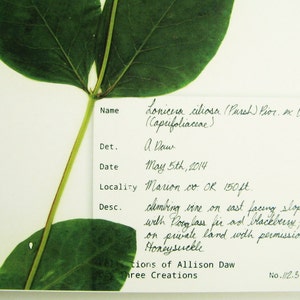 Name Lonicera ciliosa (Pursh) Poir. ex
(Caprifoliaceae)
Det. A. Daw
Date May 5th, 2014
Locality Marion co. OR 150ft.
Desc. climbing vine on east facing slop
with Douglass fir and blackberry
on private land with permission
Honeysuckle
ctions of Allison Daw
hree Creations No.